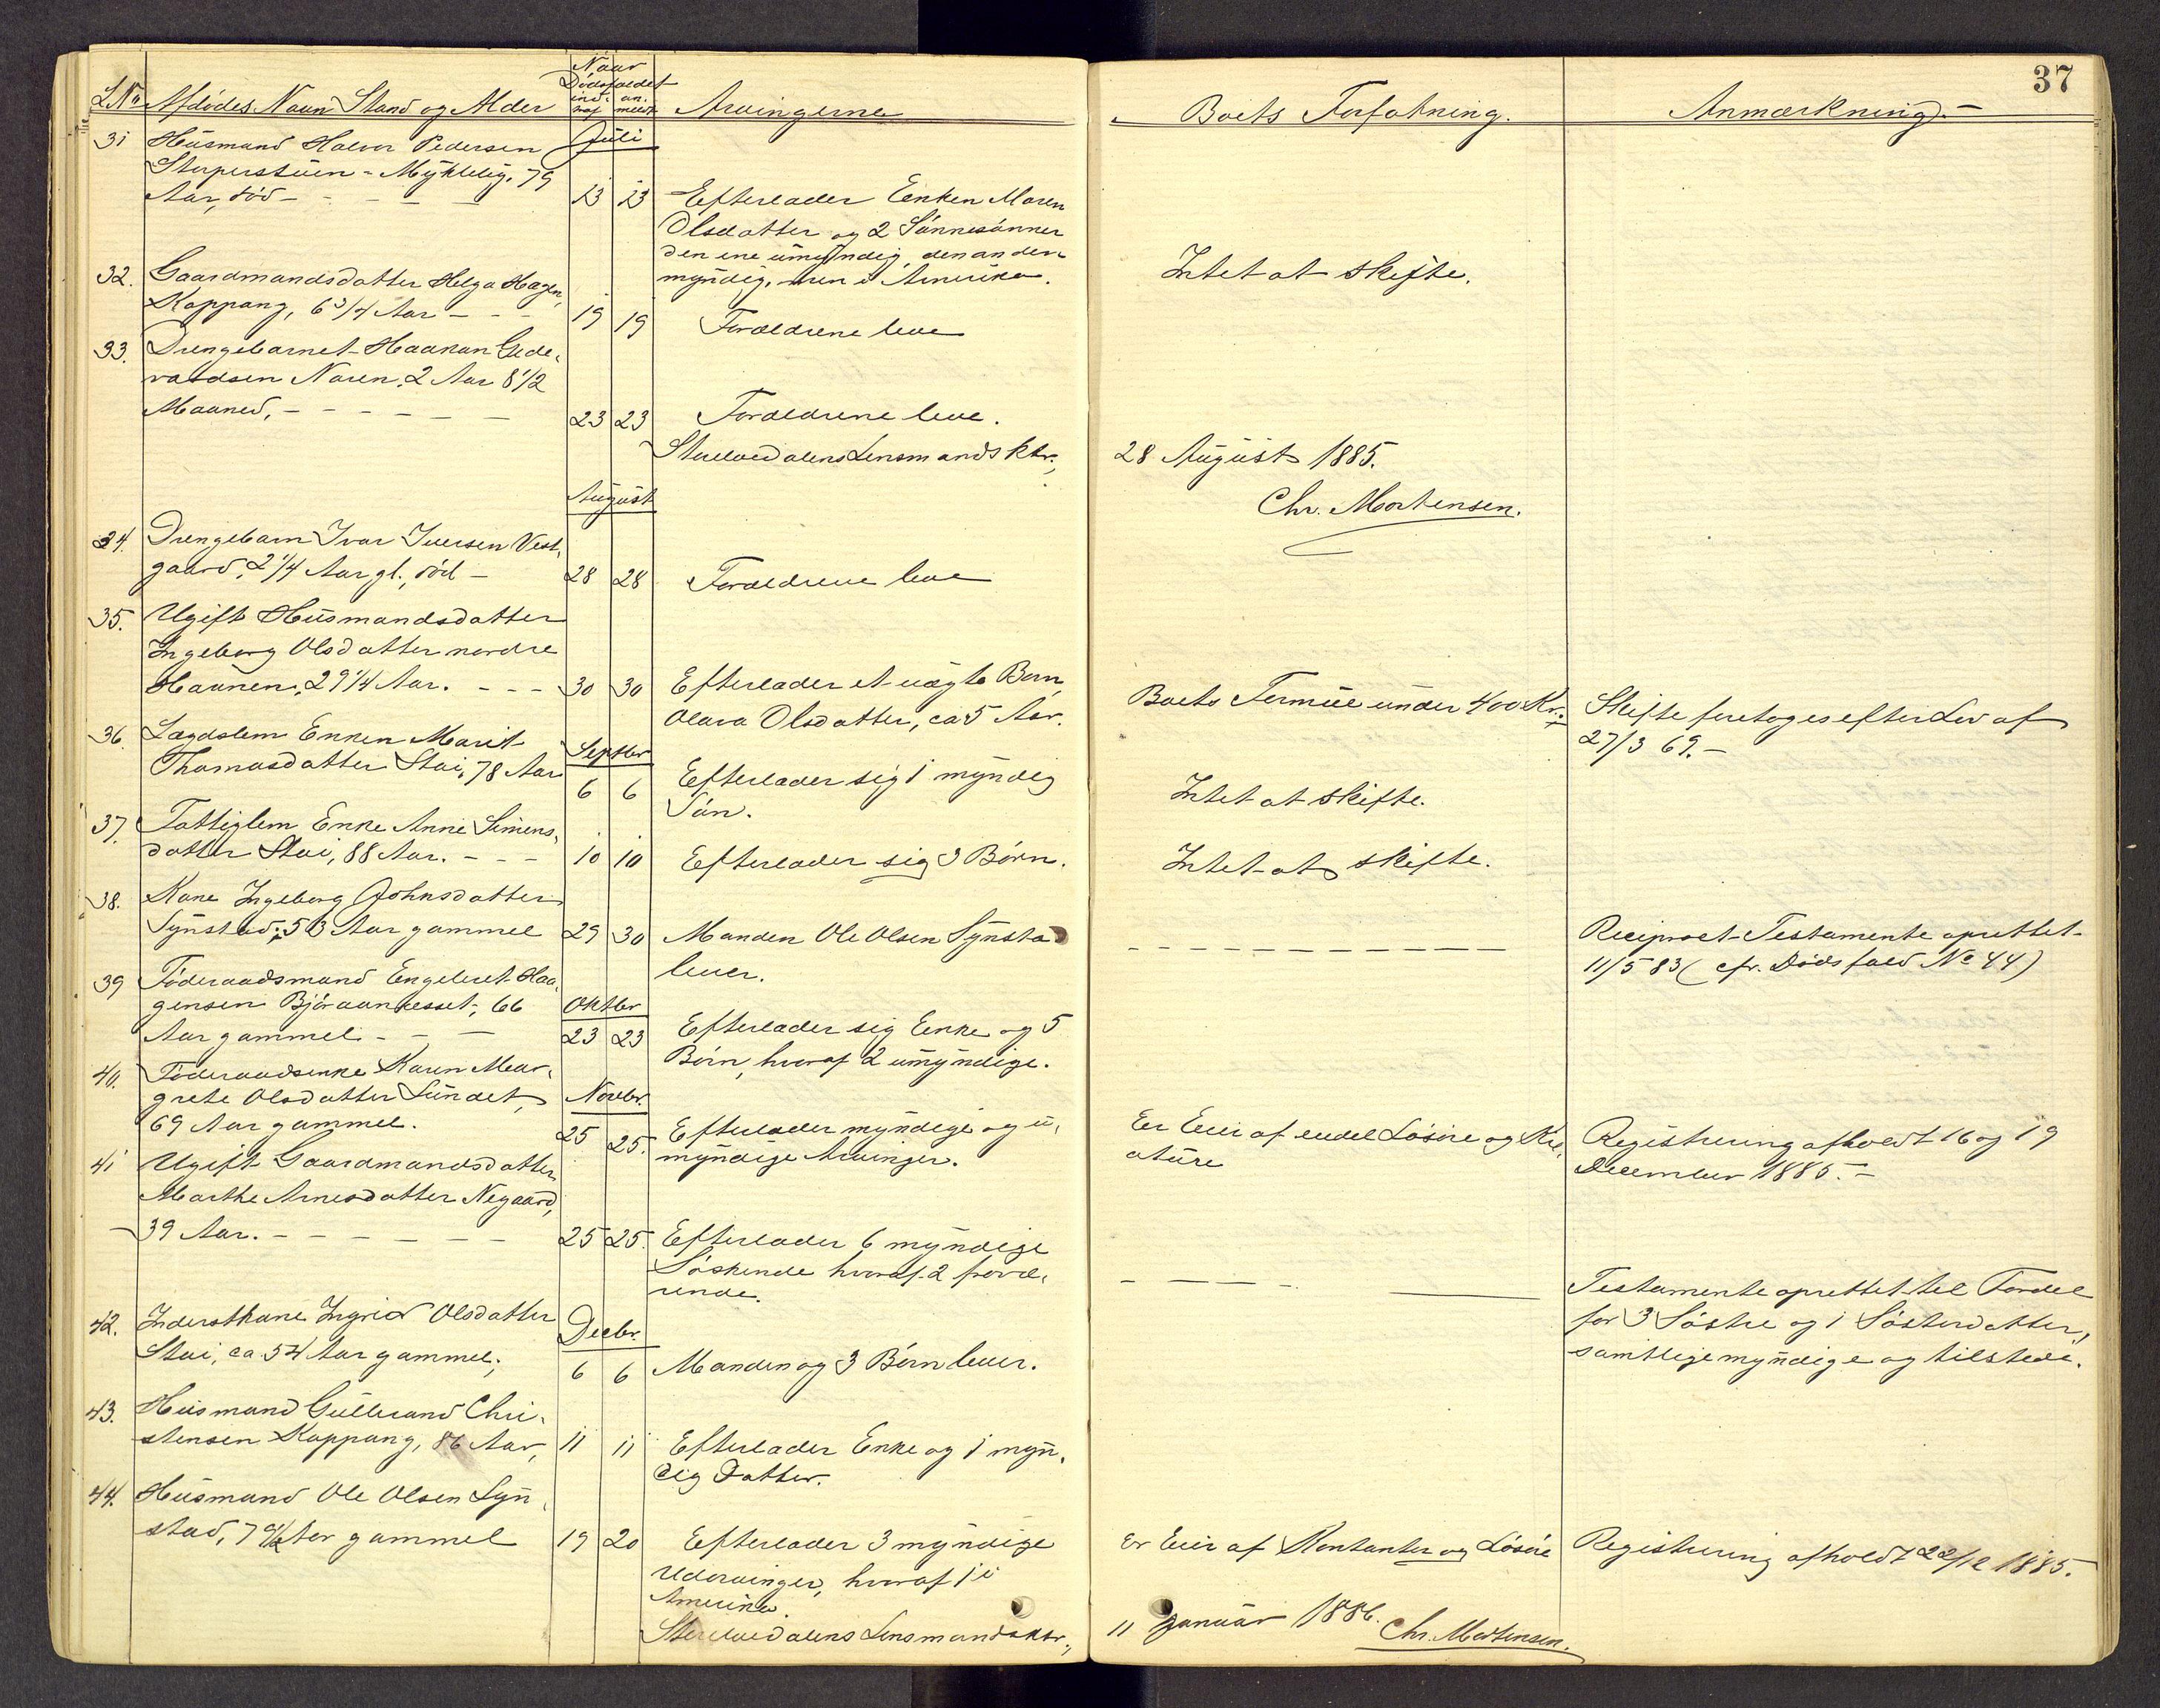 37
L.No Afdødes Navn Stand og Alder
Naar
Dødsfaldet
ind- an-
traf meldt
Arvingerne
Boets Forfatning.
Anmærkning. -
31 Husmand Halvor Pedersen
Juli
Myklebÿ, 79
Aar, död - - - -
13 13 Efterlader Enken Maren
Olsdatter og 2 Sönnesönner
den ene umÿndig, den anden
mÿndig, men i Amerika.
Intet at skifte.
32. Gaardmandsdatter Helga Hagen,
Koppang, 6 3/4 Aar - - -
19 19 Forældrene leve
33. Drengebarnet Haakon Gude-
Naren, 2 Aar 8 1/2
Maaned, - - - - - -
23 23 Forældrene leve.
Storelvedalens Lensmandsktr.,
28 August 1885.
Chr. Mortensen.
August
34. Drengebarn Ivar Iversen Vest-
gaard, 2 1/4 Aar gl., död -
28 28 Forældrene leve
35. Ugift Husmandsdatter
Ingeborg Olsdatter nordre
Haünen, 29 1/4 Aar. - - -
30 30 Efterlader et uægte Barn
Olava Olsdatter, ca 5 Aar.
Boets Formue under 400 Kr.
Skifte foretoges efter Lov af
27/3 69. -
36. Lægdslem Enken Marit
Thomasdatter Stai, 78 Aar
Septbr
6 6 Efterlader sig 1 mÿndig
Sön.
Intet at skifte.
37. Fattiglem Enke Anne Simens-
datter Stai, 88 Aar. - - -
10 10 Efterlader sig 3 Börn.
Intet at skifte.
38. Kone Ingeborg Johnsdatter
Sÿnstad, 53 Aar gammel
29 30 Manden Ole Olsen Sÿnstad
lever.
- - - - - - - - - -
Reciproct Testamente oprettet
11/5 83 (cfr. Dödsfald No 44)
39 Föderaadsmand Engebret Haa-
gensen Björaanesset, 66
Aar gammel - - -
Oktbr
23 23 Efterlader sig Enke og 5
Börn, hvoraf 2 umÿndige.
40. Föderaadsenke Karen Mar-
grete Olsdatter Sundet,
69 Aar gammel.
Novbr.
25 25. Efterlader mÿndige og u-
mÿndige Arvinger.
Er Eier af endel Lösöre og Kre-
ature
Registrering afholdt 16 og 19
December 1885. -
41 Ugift Gaardmandsdatter
Marthe Arnesdatter Negaard,
39 Aar. - - - - - -
25 25. Efterlader 6 mÿndige
Söskende hvoraf 2 fravæ-
rende.
- - - -
Testamente oprettet til Fordel
for 3 Söstre og 1 Sösterdatter,
samtlige mÿndige og tilstede.
42. Inderstkone Ingrid Olsdatter
Stai, ca 54 Aar gammel,
Decbr.
6 6 Manden og 3 Börn lever.
43. Husmand Gulbrand Chri-
stensen Koppang, 86 Aar,
11 11 Efterlader Enke og 1 mÿn-
dig Datter.
44. Husmand Ole Olsen Sÿn-
stad, Aar gammel
19 20 Efterlader 3 mÿndige
Udarvinger, hvoraf 1 i
Amerika.
Er Eier af Kontanter og Lösöre
Registrering afholdt 22/12 1885.
Storelvedalens Lensmandsktr.,
11 Januar 1886. Chr. Mortensen.